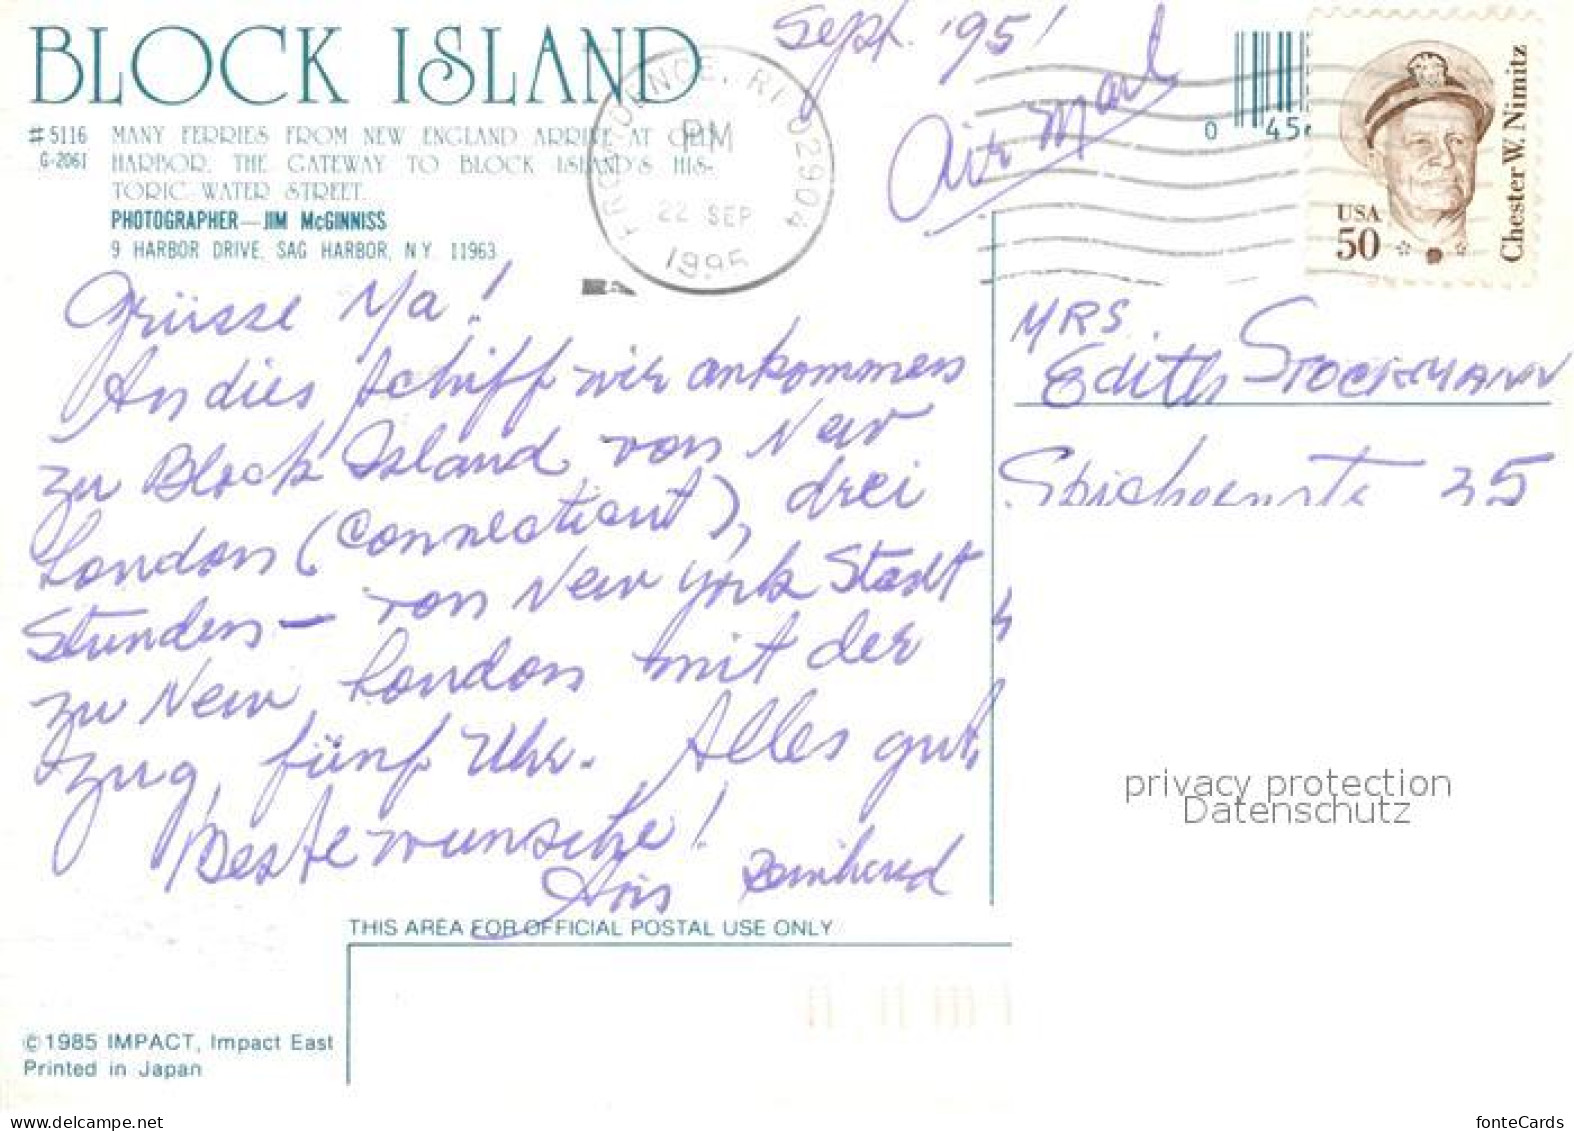 BLOCK ISLAND
#5116 MANY FERRIES FROM NEW ENGLAND ARRIVE AT OLD
G-2061 HARBOR, THE GATEWAY TO BLOCK ISLAND'S HIS-
TORIC WATER STREET.
PHOTOGRAPHER—JIM McGINNISS
9 HARBOR DRIVE, SAG HARBOR, N.Y. 11963
Sept. '95!
Air Mail
PROVIDENCE, RI 02904
PM
22 SEP
1995
0 45
USA
50
Chester W. Nimitz
Grüsse Ma!
An dies schiff wir ankommen
zu Block Island von New
London (Connecticut), drei
Stunden – von New York Stadt
zu New London mit der
Zug, fünf Uhr. Alles gut,
Beste wunsche!
MRS.
Edith STOCKMANN
35
privacy protection
Datenschutz
THIS AREA FOR OFFICIAL POSTAL USE ONLY
©1985 IMPACT, Impact East
Printed in Japan
www.delcampe.net
fonteCards